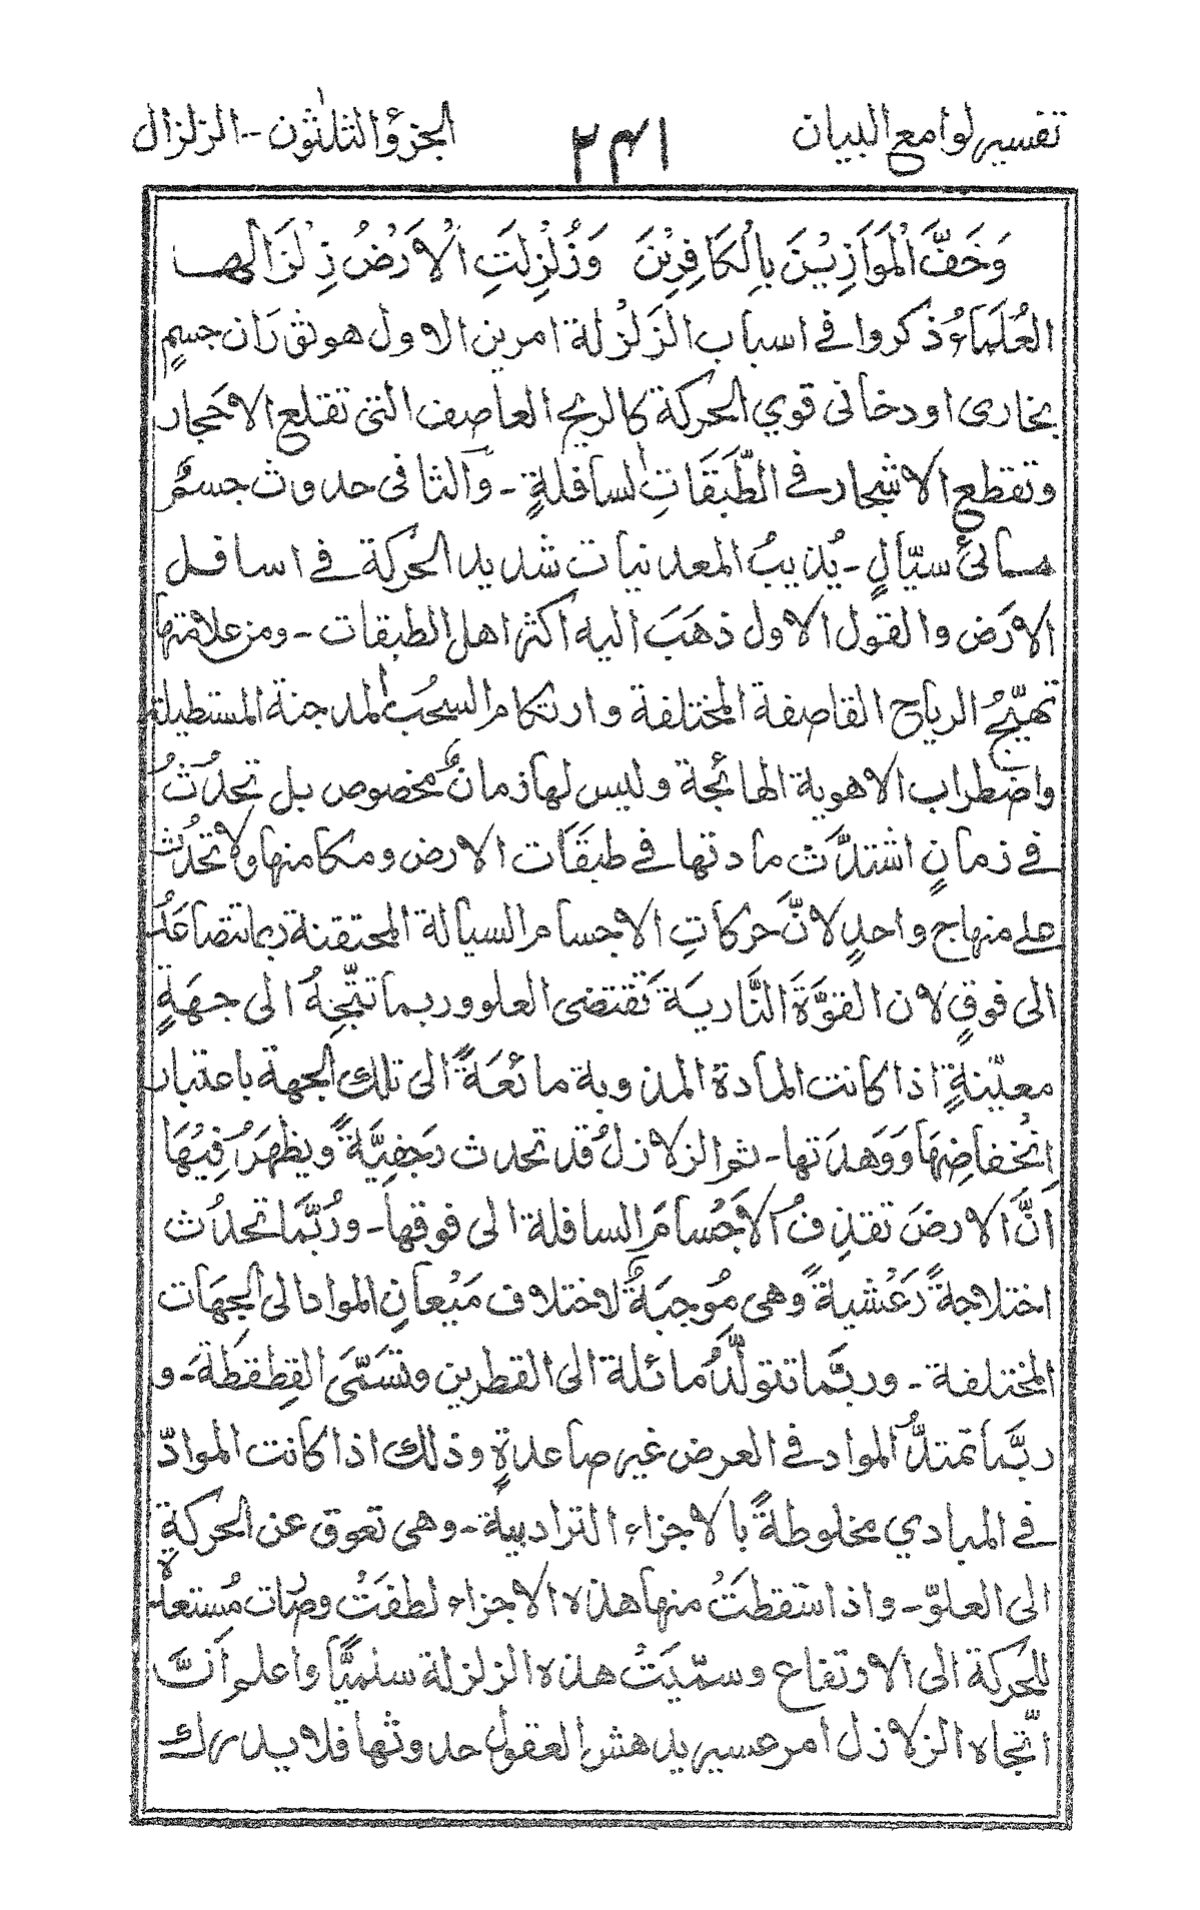 تفسير لوامع البيان ١٤٢ الجزؤ الثلثون - الزلزال
وَخَفَّ الْمَوَازِيْنَ بِالْكَافِرِيْنَ وَزُلْزِلَتِ الْاَرْضُ زِلْزَالَهَا
العُلَمَاءُ ذكروا في اسباب الزَلزلة امرين الاول هو ثوران جسمٍ
بخارى او دخانى قوي الحركة كالريح العاصف التى تقلع الاحجار
وتقطع الاشجار في الطَّبَقَاتِ لسافلةٍ - والثانى حدوث جسمٌ
مائىٌ سيّالٍ - يُذيبُ المعدنيات شديد الحركة في اسافل
الارَض والقول الاول ذهَبَ اليه اكثر اهل الطبقات - ومن علامتها
تهيّجُ الرياح القاصفة المختلفة وارتكام السحُب المدجنة المستطيلة
واضطراب الاهوية الهائجة وليس لها زمانٌ مخصوص بل تحدُثُ
في زمانٍ اشتدَّت مادتها في طبقَات الارض ومكامنها ولا تحدُث
على منهاج واحدٍ لانَّ حركاتِ الاجسام السيالة المحتقنة ربما تتصاعَدُ
الى فوقٍ لان القوَّةَ النَّاريَة تقتضى العلو وربما تتَّجِهُ الى جهَةٍ
معيّنةٍ اذا كانت المادة المذوبة مائعَةً الى تلك الجهة باعتبار
اِنْخفاضِهَا وَوَهدَتها - ثم الزلازلُ قد تحدث رَجفِيَّةً ويظهَرُ فِيْهَا
اَنَّ الارضَ تقذِفُ الاَجْسَامَ السافلة الى فوقها - ورُبَّمَا تحدُث
اختلاجةً رَعْشيةً وهى مُوجبَةٌ لاختلاف مَيْعانِ المواد الى الجِهَات
المختلفة - وربَّما تتولَّدُ مائلة الى القطرين وتسَمَّى القِطقطَةَ - و
ربَّما تمتدُّ المواد في العرض غير صاعدةٍ وذلك اذا كانت الموادّ
في المبادي مخلوطةً بالاجزاء الترابية - وهى تعوق عن الحركة
الى العلوّ - واذا سقطَتْ منها هذه الاجزاء لطفَتْ وصَات مُستعدة
للحركة الى الارتفاع وسمّيَتْ هذه الزلزلة سلّميًّا واعلم اَنَّ
اتّجاه الزلازل امر عسير يدهش العقول حدوثها فلا يدرك